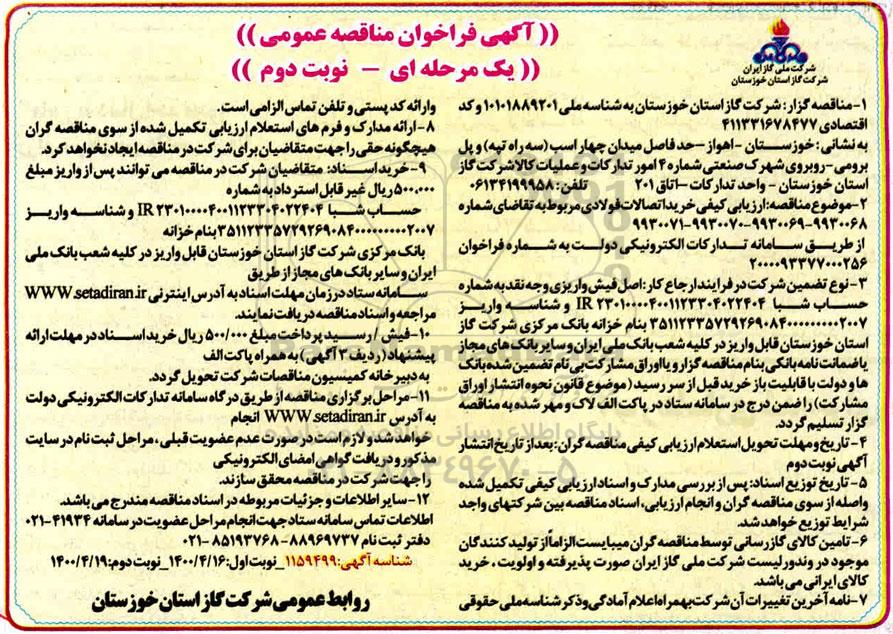 (( آگهی فراخوان مناقصه عمومی ))
(( یک مرحله ای – نوبت دوم ))
شرکت ملی گاز ایران
شرکت گاز استان خوزستان
۱- مناقصه گزار: شرکت گاز استان خوزستان به شناسه ملی ۱۰۱۰۱۸۸۹۲۰۱ و کد
اقتصادی ۴۱۱۳۳۱۶۷۸۴۷۷
به نشانی: خوزستان - اهواز – حد فاصل میدان چهار اسب (سه راه تپه) و پل
برومی- روبروی شهرک صنعتی شماره ۴ امور تدارکات و عملیات کالا شرکت گاز
استان خوزستان - واحد تدارکات – اتاق ۲۰۱ تلفن: ۰۶۱۳۴۱۹۹۹۵۸
۲- موضوع مناقصه: ارزیابی کیفی خرید اتصالات فولادی مربوط به تقاضای شماره
۹۹۳۰۰۶۸-۹۹۳۰۰۶۹-۹۹۳۰۰۷۰-۹۹۳۰۰۷۱
از طریق سامانه تدارکات الکترونیکی دولت به شماره فراخوان
۲۰۰۰۰۹۳۳۷۷۰۰۰۲۵۶
۳- نوع تضمین شرکت در فرایند ارجاع کار: اصل فیش واریزی وجه نقد به شماره
حساب شبا IR ۲۳۰۱۰۰۰۰۴۰۰۱۱۲۳۳۰۴۰۲۲۴۰۴ و شناسه واریز
۲۰۰۷ ۳۵۱۱۲۳۳۵۷۲۹۲۶۹۰۸۴۰۰۰۰۰۰۰۰۰ بنام خزانه بانک مرکزی شرکت گاز
استان خوزستان قابل واریز در کلیه شعب بانک ملی ایران و سایر بانک های مجاز
یا ضمانت نامه بانکی بنام مناقصه گزار و یا اوراق مشارکت بی نام تضمین شده بانک
ها و دولت با قابلیت باز خرید قبل از سر رسید (موضوع قانون نحوه انتشار اوراق
مشارکت) را ضمن درج در سامانه ستاد در پاکت الف لاک و مهر شده به مناقصه
گزار تسلیم گردد.
۴- تاریخ و مهلت تحویل استعلام ارزیابی کیفی مناقصه گران: بعد از تاریخ انتشار
آگهی نوبت دوم
۵- تاریخ توزیع اسناد: پس از بررسی مدارک و اسناد ارزیابی کیفی تکمیل شده
واصله از سوی مناقصه گران و انجام ارزیابی، اسناد مناقصه بین شرکتهای واجد
شرایط توزیع خواهد شد.
۶- تامین کالای گازرسانی توسط مناقصه گران میبایست الزاماً از تولید کنندگان
موجود در وندور لیست شرکت ملی گاز ایران صورت پذیرفته و اولویت، خرید
کالای ایرانی می باشد.
۷- نامه آخرین تغییرات آن شرکت بهمراه اعلام آمادگی و ذکر شناسه ملی حقوقی
و ارائه کد پستی و تلفن تماس الزامی است.
۸- ارائه مدارک و فرم های استعلام ارزیابی تکمیل شده از سوی مناقصه گران
هیچگونه حقی را جهت متقاضیان برای شرکت در مناقصه ایجاد نخواهد کرد.
۹- خرید اسناد: متقاضیان شرکت در مناقصه می توانند پس از واریز مبلغ
۵۰۰,۰۰۰ ریال غیر قابل استرداد به شماره
حساب شبا IR ۲۳۰۱۰۰۰۰۴۰۰۱۱۲۳۳۰۴۰۲۲۴۰۴ و شناسه واریز
۲۰۰۷ ۳۵۱۱۲۳۳۵۷۲۹۲۶۹۰۸۴۰۰۰۰۰۰۰۰۰ بنام خزانه
بانک مرکزی شرکت گاز استان خوزستان قابل واریز در کلیه شعب بانک ملی
ایران و سایر بانک های مجاز از طریق
سامانه ستاد در زمان مهلت اسناد به آدرس اینترنتی WWW.setadiran.ir
مراجعه و اسناد مناقصه دریافت نمایند.
۱۰- فیش / رسید پرداخت مبلغ ۵۰۰/۰۰۰ ریال خرید اسناد در مهلت ارائه
پیشنهاد (ردیف ۳ آگهی) به همراه پاکت الف
به دبیرخانه کمیسیون مناقصات شرکت تحویل گردد.
۱۱- مراحل برگزاری مناقصه از طریق درگاه سامانه تدارکات الکترونیکی دولت
به آدرس WWW.setadiran.ir انجام
خواهد شد و لازم است در صورت عدم عضویت قبلی، مراحل ثبت نام در سایت
مذکور و دریافت گواهی امضای الکترونیکی
را جهت شرکت در مناقصه محقق سازند.
۱۲- سایر اطلاعات و جزئیات مربوطه در اسناد مناقصه مندرج می باشد.
اطلاعات تماس سامانه ستاد جهت انجام مراحل عضویت در سامانه ۴۱۹۳۴-۰۲۱
دفتر ثبت نام ۸۸۹۶۹۷۳۷ - ۸۵۱۹۳۷۶۸-۰۲۱
شناسه آگهی: ۱۱۵۹۴۹۹_نوبت اول: ۱۴۰۰/۴/۱۶_نوبت دوم: ۱۴۰۰/۴/۱۹
روابط عمومی شرکت گاز استان خوزستان
پایگاه اطلاع رسانی
۰۲۱-۸۸۳۴۹۶۷۰-۵